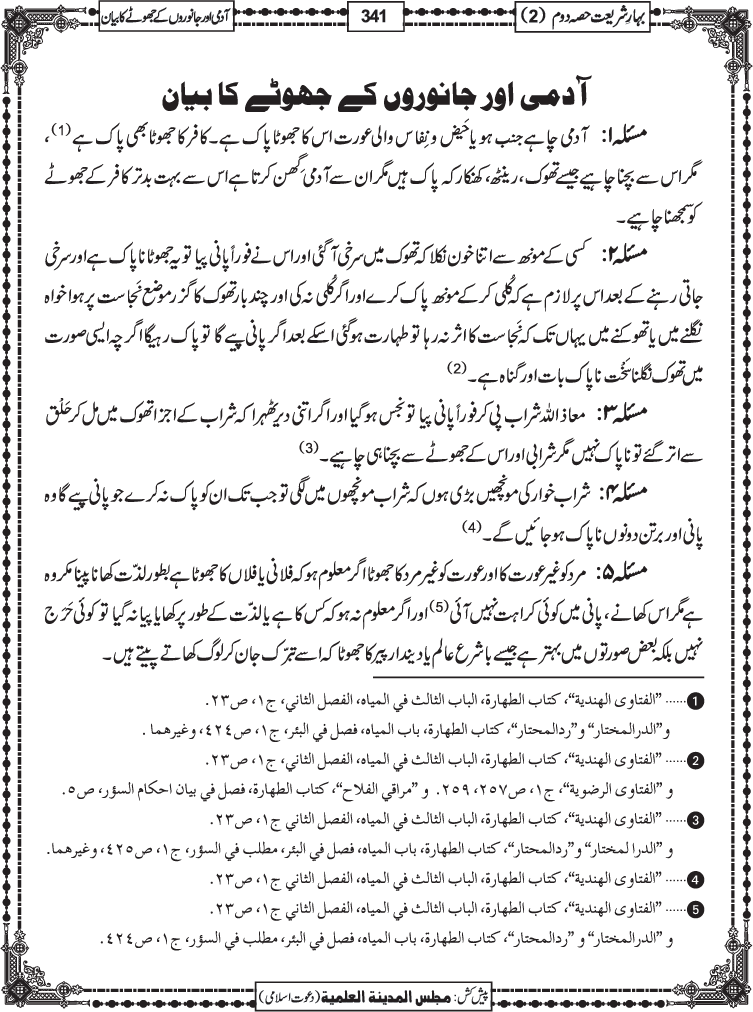 بہارِ شریعت حصہ دوم (2)
341
آدمی اور جانوروں کے جھوٹے کا بیان
آدمی اور جانوروں کے جھوٹے کا بیان
مسئلہ ۱: آدمی چاہے جنب ہو یا حَیض و نِفاس والی عورت اس کا جھوٹا پاک ہے۔ کافر کا جھوٹا بھی پاک ہے (1)،
مگر اس سے بچنا چاہیے جیسے تھوک، رینٹھ، کھنکار کہ پاک ہیں مگر ان سے آدمی گِھن کرتا ہے اس سے بہت بدتر کافر کے جھوٹے
کو سمجھنا چاہیے۔
مسئلہ ۲: کسی کے مونھ سے اتنا خون نکلا کہ تھوک میں سرخی آگئی اور اس نے فوراً پانی پیا تو یہ جھوٹا ناپاک ہے اور سرخی
جاتی رہنے کے بعد اس پر لازم ہے کہ کُلی کر کے مونھ پاک کرے اور اگر کُلی نہ کی اور چند بار تھوک کا گزر موضع نَجاست پر ہوا خواہ
نگلنے میں یا تھوکنے میں یہاں تک کہ نَجاست کا اثر نہ رہا تو طہارت ہوگئی اسکے بعد اگر پانی پیے گا تو پاک رہیگا اگرچہ ایسی صورت
میں تھوک نگلنا سَخْت ناپاک بات اور گناہ ہے۔ (2)
مسئلہ ۳: معاذ اللہ شراب پی کر فوراً پانی پیا تو نجس ہوگیا اور اگر اتنی دیر ٹھہرا کہ شراب کے اجزا تھوک میں مل کر حَلْق
سے اتر گئے تو ناپاک نہیں مگر شرابی اور اس کے جھوٹے سے بچنا ہی چاہیے۔ (3)
مسئلہ ۴: شراب خوار کی مونچھیں بڑی ہوں کہ شراب مونچھوں میں لگی تو جب تک ان کو پاک نہ کرے جو پانی پیے گا وہ
پانی اور برتن دونوں ناپاک ہو جائیں گے۔ (4)
مسئلہ ۵: مرد کو غیر عورت کا اور عورت کو غیر مرد کا جھوٹا اگر معلوم ہو کہ فلانی یا فلاں کا جھوٹا ہے بطور لذّت کھانا پینا مکروہ
ہے مگر اس کھانے، پانی میں کوئی کراہت نہیں آئی (5) اور اگر معلوم نہ ہو کہ کس کا ہے یا لذّت کے طور پر کھایا پیا نہ گیا تو کوئی حَرَج
نہیں بلکہ بعض صورتوں میں بہتر ہے جیسے باشرع عالم یا دیندار پیر کا جھوٹا کہ اسے تبرّک جان کر لوگ کھاتے پیتے ہیں۔
1 ...... "الفتاوی الھندیة"، کتاب الطھارة، الباب الثالث في المیاہ، الفصل الثاني، ج۱، ص۲۳.
و"الدرالمختار" و"ردالمحتار"، کتاب الطھارة، باب المیاہ، فصل في البئر، ج۱، ص۴۲۴، وغیرھما .
2 ...... "الفتاوی الھندیة"، کتاب الطھارة، الباب الثالث في المیاہ، الفصل الثاني، ج۱، ص۲۳.
و "الفتاوی الرضویة"، ج۱، ص۲۵۷، ۲۵۹. و "مراقي الفلاح"، کتاب الطھارة، فصل في بیان احکام السؤر، ص۵.
3 ...... "الفتاوی الھندیة"، کتاب الطھارة، الباب الثالث في المیاہ، الفصل الثاني ج۱، ص۲۳.
و "الدرا لمختار" و"ردالمحتار"، کتاب الطھارة، باب المیاہ، فصل في البئر، مطلب في السؤر، ج۱، ص۴۲۵، وغیرھما.
4 ...... "الفتاوی الھندیة"، کتاب الطھارة، الباب الثالث في المیاہ، الفصل الثاني ج۱، ص۲۳.
5 ...... "الفتاوی الھندیة"، کتاب الطھارة، الباب الثالث في المیاہ، الفصل الثاني ج۱، ص۲۳.
و "الدرالمختار" و "ردالمحتار"، کتاب الطھارة، باب المیاہ، فصل في البئر، مطلب في السؤر، ج۱، ص۴۲۴.
پیش کش: مجلس المدینة العلمیة (دعوت اسلامی)